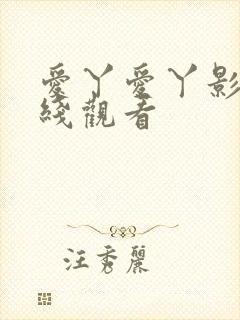 愛丫愛丫影
綫觀看
汪秀麗